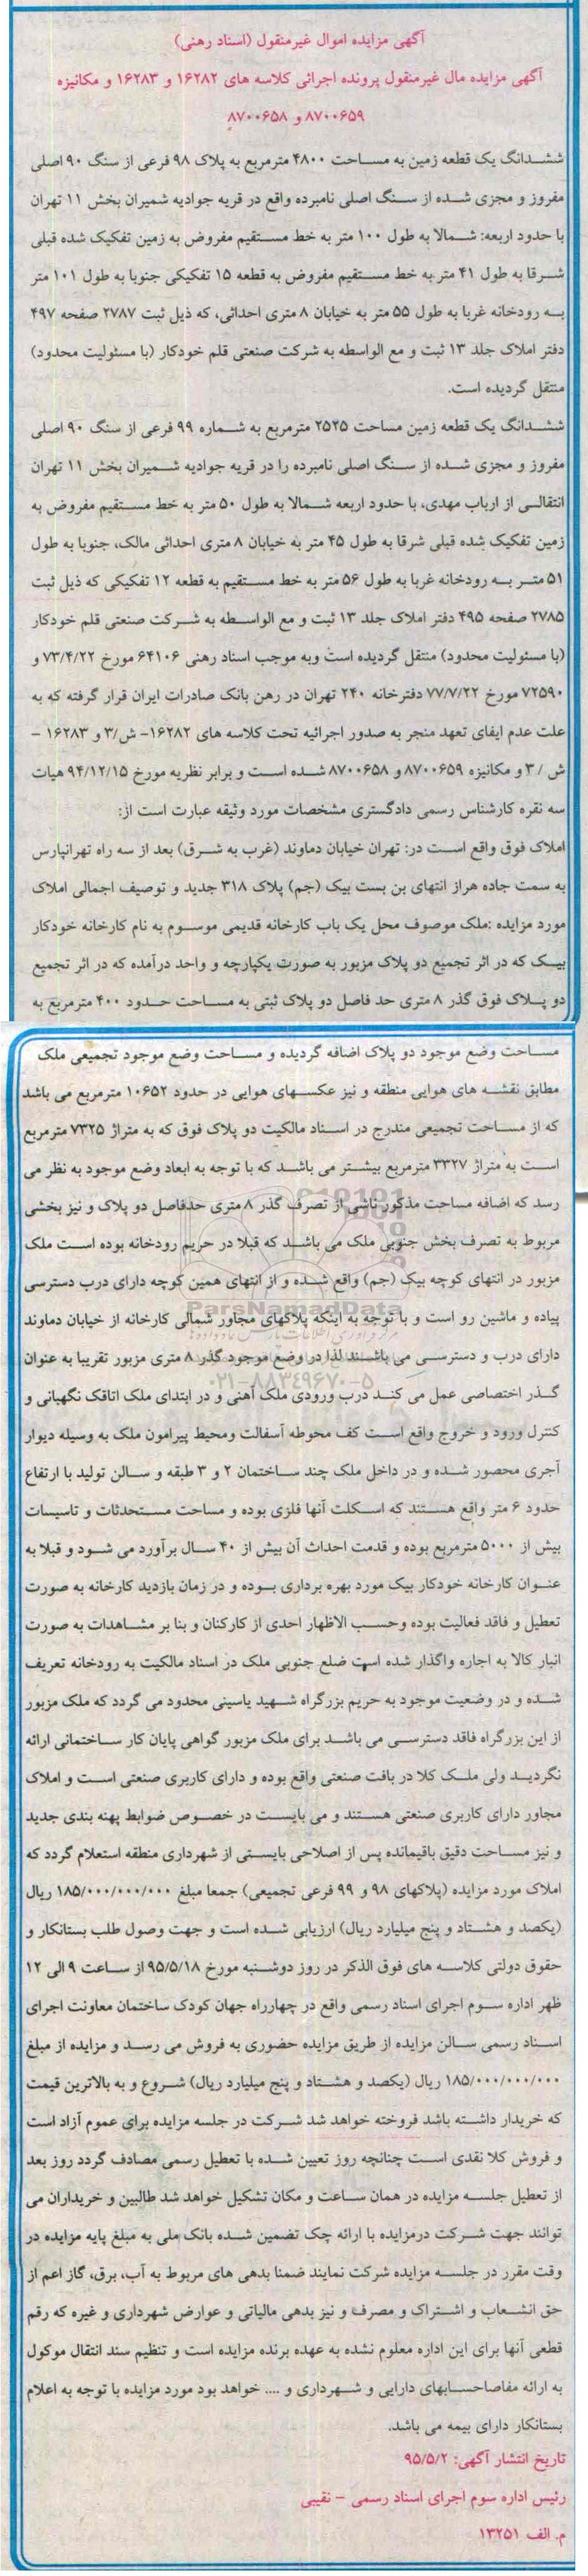 آگهی مزایده اموال غیرمنقول (اسناد رهنی)
آگهی مزایده مال غیرمنقول پرونده اجرائی کلاسه های ۱۶۲۸۲ و ۱۶۲۸۳ و مکانیزه
۸۷۰۰۶۵۹ و ۸۷۰۰۶۵۸
ششدانگ یک قطعه زمین به مساحت ۴۸۰۰ مترمربع به پلاک ۹۸ فرعی از سنگ ۹۰ اصلی
مفروز و مجزی شده از سنگ اصلی نامبرده واقع در قریه جوادیه شمیران بخش ۱۱ تهران
با حدود اربعه: شمالا به طول ۱۰۰ متر به خط مستقیم مفروض به زمین تفکیک شده قبلی
شرقا به طول ۴۱ متر به خط مستقیم مفروض به قطعه ۱۵ تفکیکی جنوبا به طول ۱۰۱ متر
به رودخانه غربا به طول ۵۵ متر به خیابان ۸ متری احداثی، که ذیل ثبت ۲۷۸۷ صفحه ۴۹۷
دفتر املاک جلد ۱۳ ثبت و مع الواسطه به شرکت صنعتی قلم خودکار (با مسئولیت محدود)
منتقل گردیده است.
ششدانگ یک قطعه زمین مساحت ۲۵۲۵ مترمربع به شماره ۹۹ فرعی از سنگ ۹۰ اصلی
مفروز و مجزی شده از سنگ اصلی نامبرده را در قریه جوادیه شمیران بخش ۱۱ تهران
انتقالی از ارباب مهدی، با حدود اربعه شمالا به طول ۵۰ متر به خط مستقیم مفروض به
زمین تفکیک شده قبلی شرقا به طول ۴۵ متر به خیابان ۸ متری احداثی مالک، جنوبا به طول
۵۱ متر به رودخانه غربا به طول ۵۶ متر به خط مستقیم به قطعه ۱۲ تفکیکی که ذیل ثبت
۲۷۸۵ صفحه ۴۹۵ دفتر املاک جلد ۱۳ ثبت و مع الواسطه به شرکت صنعتی قلم خودکار
(با مسئولیت محدود) منتقل گردیده است وبه موجب اسناد رهنی ۶۴۱۰۶ مورخ ۷۳/۴/۲۲ و
۷۲۵۹۰ مورخ ۷۷/۷/۲۲ دفترخانه ۲۴۰ تهران در رهن بانک صادرات ایران قرار گرفته که به
علت عدم ایفای تعهد منجر به صدور اجرائیه تحت کلاسه های ۱۶۲۸۲- ش/۳ و ۱۶۲۸۳ -
ش / ۳ و مکانیزه ۸۷۰۰۶۵۹ و ۸۷۰۰۶۵۸ شده است و برابر نظریه مورخ ۹۴/۱۲/۱۵ هیات
سه نفره کارشناس رسمی دادگستری مشخصات مورد وثیقه عبارت است از:
املاک فوق واقع است در: تهران خیابان دماوند (غرب به شرق) بعد از سه راه تهرانپارس
به سمت جاده هراز انتهای بن بست بیک (جم) پلاک ۳۱۸ جدید و توصیف اجمالی املاک
مورد مزایده :ملک موصوف محل یک باب کارخانه قدیمی موسوم به نام کارخانه خودکار
بیک که در اثر تجمیع دو پلاک مزبور به صورت یکپارچه و واحد درآمده که در اثر تجمیع
دو پلاک فوق گذر ۸ متری حد فاصل دو پلاک ثبتی به مساحت حدود ۴۰۰ مترمربع به
مساحت وضع موجود دو پلاک اضافه گردیده و مساحت وضع موجود تجمیعی ملک
مطابق نقشه های هوایی منطقه و نیز عکسهای هوایی در حدود ۱۰۶۵۲ مترمربع می باشد
که از مساحت تجمیعی مندرج در اسناد مالکیت دو پلاک فوق که به متراژ ۷۳۲۵ مترمربع
است به متراژ ۳۳۲۷ مترمربع بیشتر می باشد که با توجه به ابعاد وضع موجود به نظر می
رسد که اضافه مساحت مذکور ناشی از تصرف گذر ۸ متری حدفاصل دو پلاک و نیز بخشی
مربوط به تصرف بخش جنوبی ملک می باشد که قبلا در حریم رودخانه بوده است ملک
مزبور در انتهای کوچه بیک (جم) واقع شده و از انتهای همین کوچه دارای درب دسترسی
پیاده و ماشین رو است و با توجه به اینکه پلاکهای مجاور شمالی کارخانه از خیابان دماوند
دارای درب و دسترسی می باشند لذا در وضع موجود گذر ۸ متری مزبور تقریبا به عنوان
گذر اختصاصی عمل می کند درب ورودی ملک آهنی و در ابتدای ملک اتاقک نگهبانی و
کنترل ورود و خروج واقع است کف محوطه آسفالت ومحیط پیرامون ملک به وسیله دیوار
آجری محصور شده و در داخل ملک چند ساختمان ۲ و ۳ طبقه و سالن تولید با ارتفاع
حدود ۶ متر واقع هستند که اسکلت آنها فلزی بوده و مساحت مستحدثات و تاسیسات
بیش از ۵۰۰۰ مترمربع بوده و قدمت احداث آن بیش از ۴۰ سال برآورد می شود و قبلا به
عنوان کارخانه خودکار بیک مورد بهره برداری بوده و در زمان بازدید کارخانه به صورت
تعطیل و فاقد فعالیت بوده وحسب الاظهار احدی از کارکنان و بنا بر مشاهدات به صورت
انبار کالا به اجاره واگذار شده است ضلع جنوبی ملک در اسناد مالکیت به رودخانه تعریف
شده و در وضعیت موجود به حریم بزرگراه شهید یاسینی محدود می گردد که ملک مزبور
از این بزرگراه فاقد دسترسی می باشد برای ملک مزبور گواهی پایان کار ساختمانی ارائه
نگردید ولی ملک کلا در بافت صنعتی واقع بوده و دارای کاربری صنعتی است و املاک
مجاور دارای کاربری صنعتی هستند و می بایست در خصوص ضوابط پهنه بندی جدید
و نیز مساحت دقیق باقیمانده پس از اصلاحی بایستی از شهرداری منطقه استعلام گردد که
املاک مورد مزایده (پلاکهای ۹۸ و ۹۹ فرعی تجمیعی) جمعا مبلغ ۱۸۵/۰۰۰/۰۰۰/۰۰۰ ریال
(یکصد و هشتاد و پنج میلیارد ریال) ارزیابی شده است و جهت وصول طلب بستانکار و
حقوق دولتی کلاسه های فوق الذکر در روز دوشنبه مورخ ۹۵/۵/۱۸ از ساعت ۹ الی ۱۲
ظهر اداره سوم اجرای اسناد رسمی واقع در چهارراه جهان کودک ساختمان معاونت اجرای
اسناد رسمی سالن مزایده از طریق مزایده حضوری به فروش می رسد و مزایده از مبلغ
۱۸۵/۰۰۰/۰۰۰/۰۰۰ ریال (یکصد و هشتاد و پنج میلیارد ریال) شروع و به بالاترین قیمت
که خریدار داشته باشد فروخته خواهد شد شرکت در جلسه مزایده برای عموم آزاد است
و فروش کلا نقدی است چنانچه روز تعیین شده با تعطیل رسمی مصادف گردد روز بعد
از تعطیل جلسه مزایده در همان ساعت و مکان تشکیل خواهد شد طالبین و خریداران می
توانند جهت شرکت درمزایده با ارائه چک تضمین شده بانک ملی به مبلغ پایه مزایده در
وقت مقرر در جلسه مزایده شرکت نمایند ضمنا بدهی های مربوط به آب، برق، گاز اعم از
حق انشعاب و اشتراک و مصرف و نیز بدهی مالیاتی و عوارض شهرداری و غیره که رقم
قطعی آنها برای این اداره معلوم نشده به عهده برنده مزایده است و تنظیم سند انتقال موکول
به ارائه مفاصاحسابهای دارایی و شهرداری و .... خواهد بود مورد مزایده با توجه به اعلام
بستانکار دارای بیمه می باشد.
تاریخ انتشار آگهی: ۹۵/۵/۲
رئیس اداره سوم اجرای اسناد رسمی - نقیبی
م. الف ۱۳۲۵۱
ParsNamadData
۰۲۱-۸۸۳۴۹۶۷۰-۵